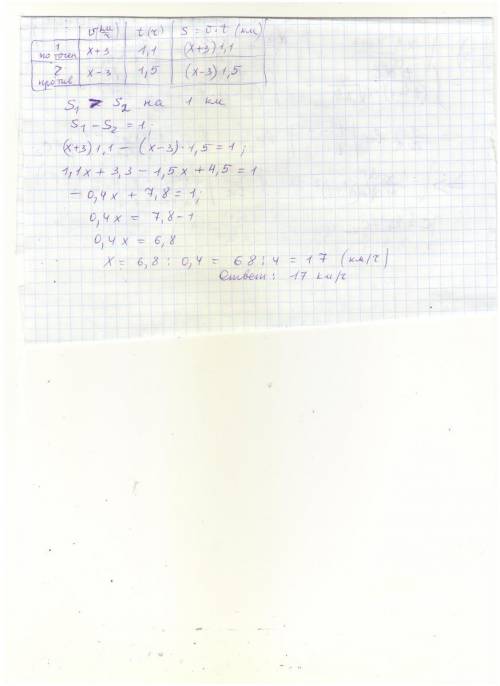 v(км/ч) t(ч) S = v·t (км)
1 по течен x+3 1,1 (x+3)1,1
2 против x-3 1,5 (x-3)1,5
S₁ > S₂ на 1 км
S₁ - S₂ = 1;
(x+3)1,1 - (x-3)·1,5 = 1;
1,1x + 3,3 - 1,5x + 4,5 = 1
- 0,4x + 7,8 = 1;
0,4x = 7,8-1
0,4x = 6,8
x = 6,8 : 0,4 = 68 : 4 = 17 (км/ч)
Ответ: 17 км/ч